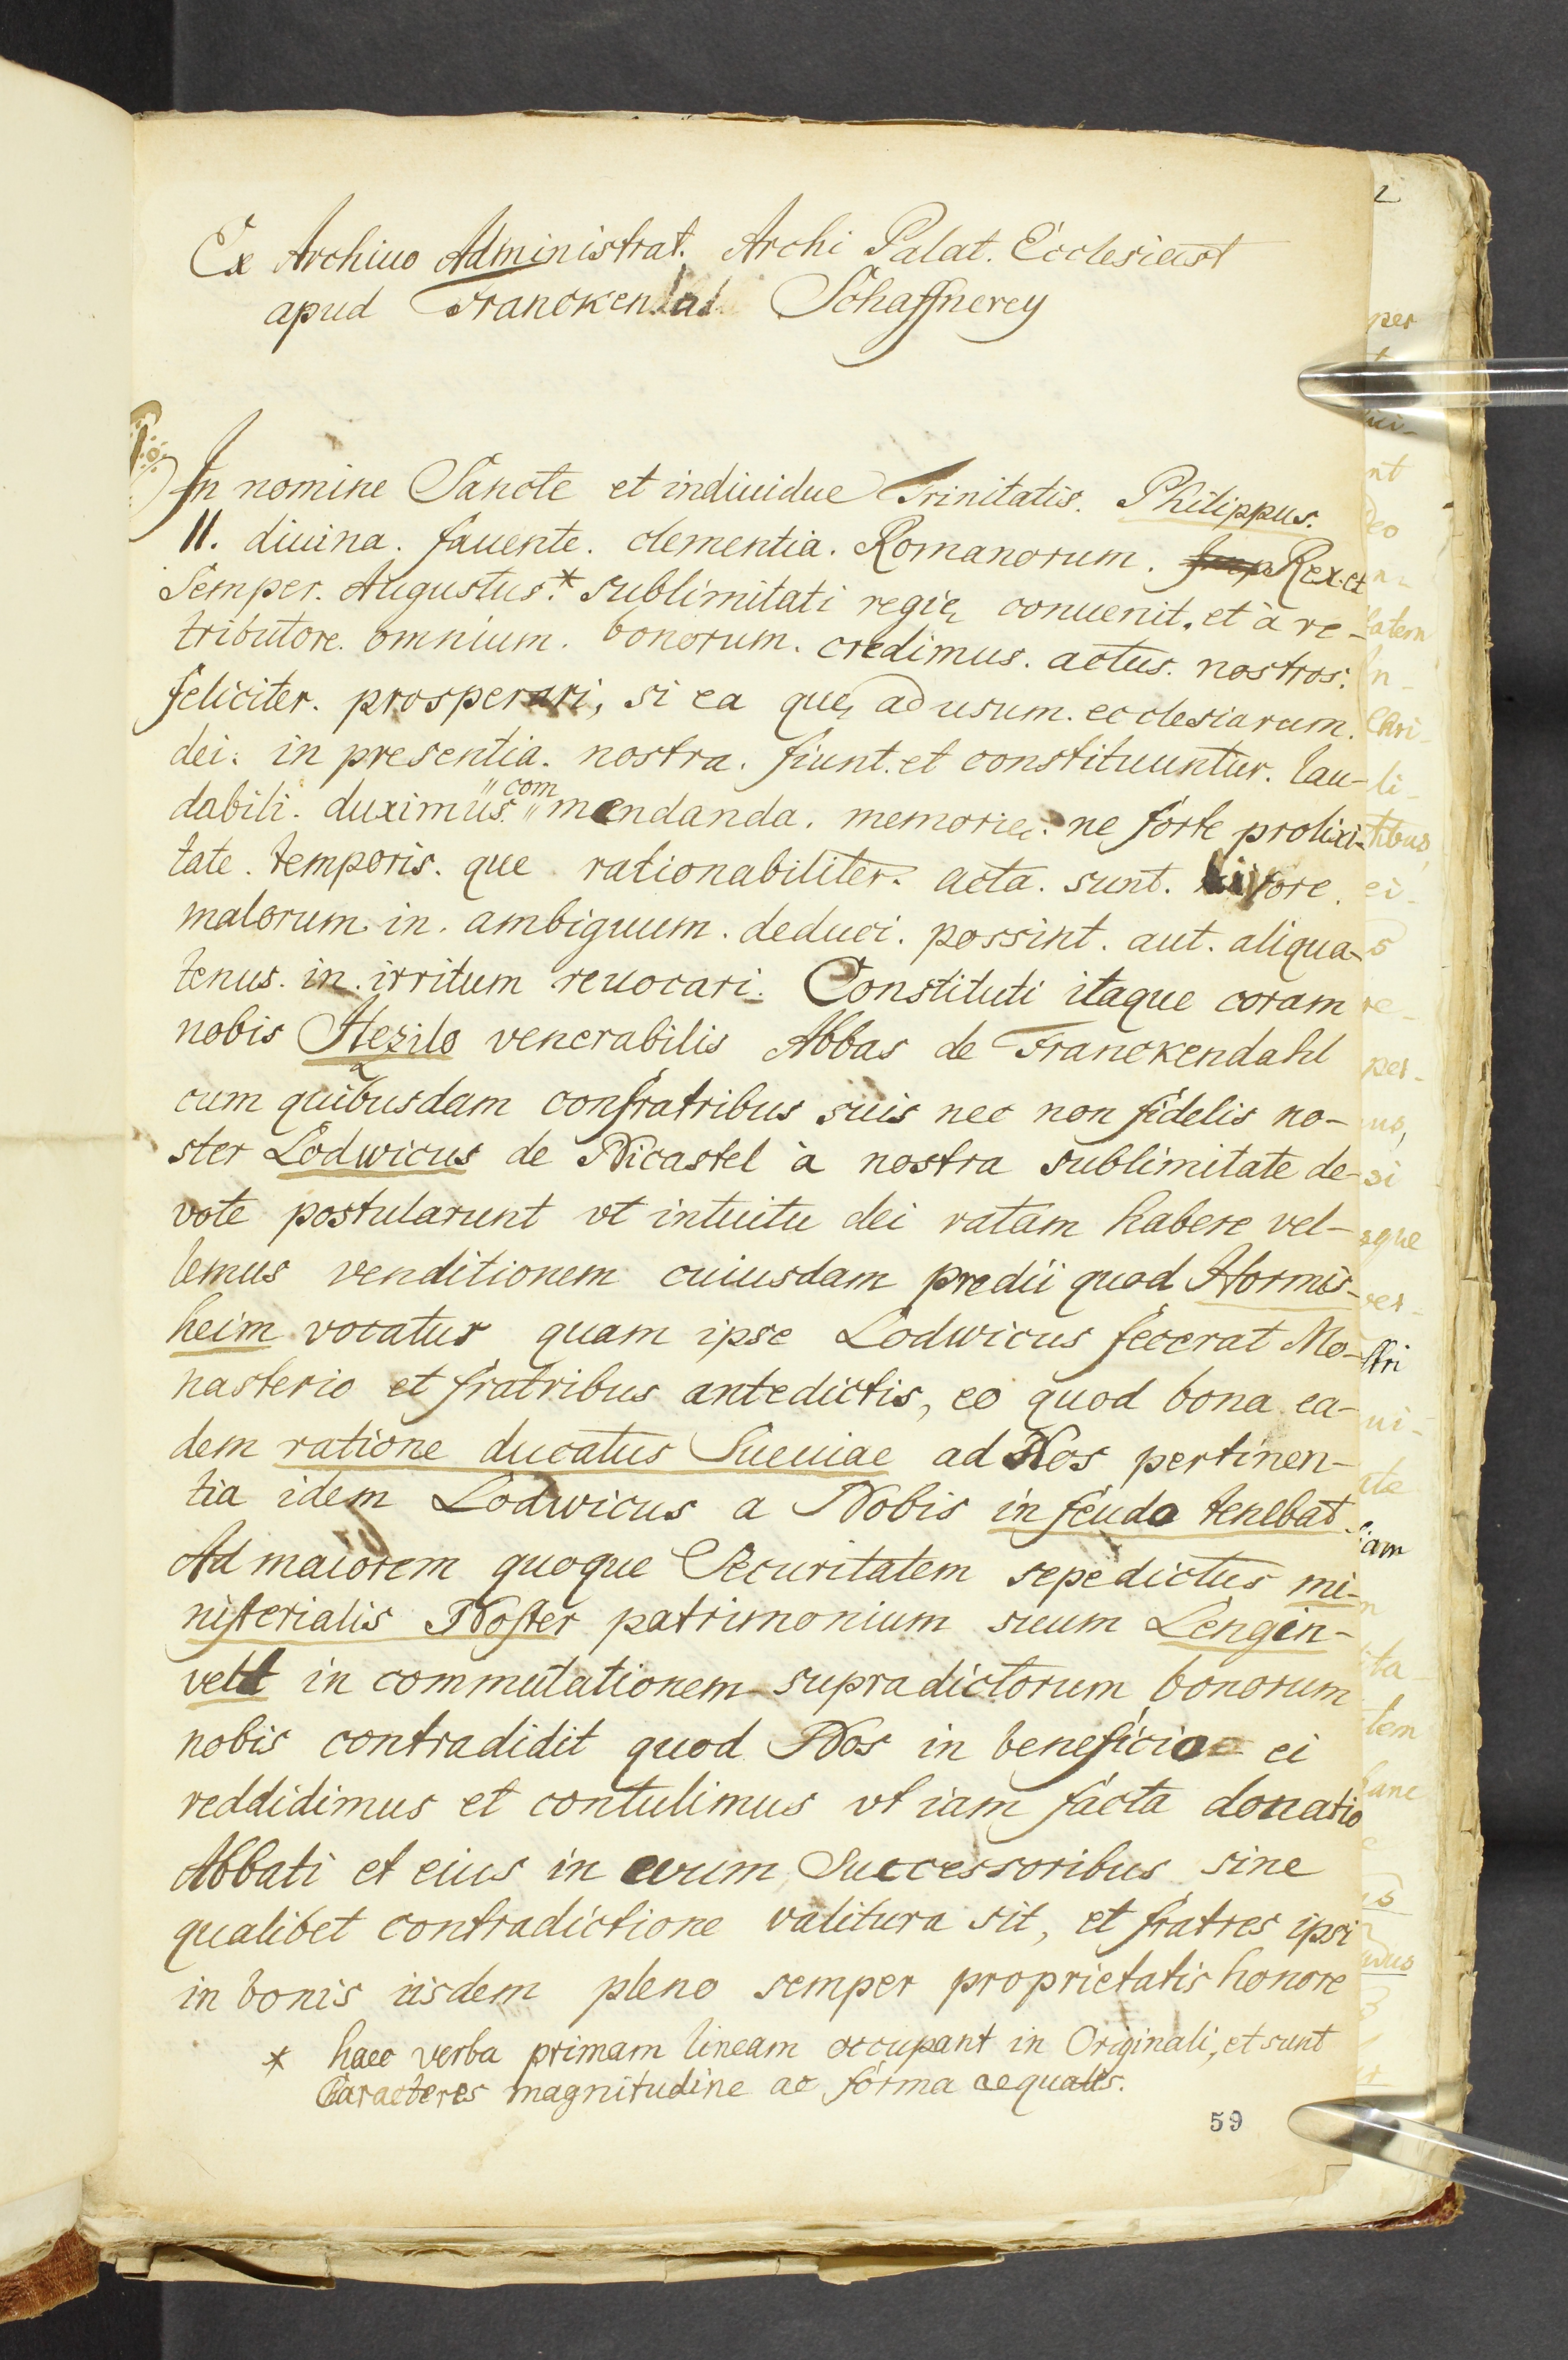 Ex Archiuo Administrat. Archi Palat. Ecclesiast
apud Franckendal Schaffnerey
In nomine Sancte et indiuidue Trinitatis. Philippus.
II. diuina. fauente. clementia. Romanorum. Imp Rex. et
Semper. Augustus.* sublimitati regię conuenit. et à re-
tributore. omnium. bonorum. credimus. actus. nostros.
feliciter. prosperari, si ea quę ad usum. ecclesiarum.
dei. in presentia. nostra. fiunt. et constituuntur. lau-
dabili. duximus. "com" mendanda. memorię. ne forte prolixi-
tate. temporis. que rationabiliter. acta. sunt. livore.
malorum. in. ambiguum. deduci. possint. aut. aliqua-
tenus. in. irritum reuocari. Constituti itaque coram
nobis Hezilo venerabilis Abbas de Franckendahl
cum quibusdam confratribus suis nec non fidelis no-
ster Lodwicus de Nicastel à nostra sublimitate de-
vote postularunt vt intuitu dei ratam habere vel-
lemus venditionem cuiusdam predii quod Hormis-
heim vocatur quam ipse Lodwicus fecerat Mo-
nasterio et fratribus antedictis, eo quod bona ea-
dem ratione ducatus Sueuiae ad Nos pertinen-
tia idem Lodwicus a Nobis in feudo tenebat
Ad maiorem quoque Securitatem sepedictus mi-
nisterialis Noster patrimonium suum Lengin-
velt in commutationem supradictorum bonorum
nobis contradidit quod Nos in beneficio ei
reddidimus et contulimus vt iam facta donatio
Abbati et eius in evum Successoribus sine
qualibet contradictione valitura sit, et fratres ipsi
in bonis iisdem pleno semper proprietatis honore
* haec verba primam lineam occupant in Originali, et sunt
Caracteres magnitudine ac forma aequales.
59